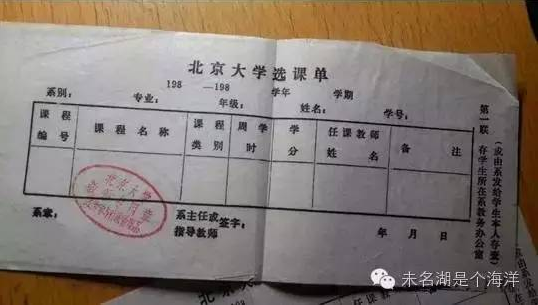 北京大学选课单
198 —198 学年 学期
系别： 专业： 年级： 姓名： 学号：
课程编号 课程名称 课程类别 周学时 学分 任课教师姓名 备注
系章： 系主任或指导教师 签字：
年 月 日
第一联 存学生所在系教务办公室
（或由系发给学生本人存查）
北京大学
未名湖是个海洋